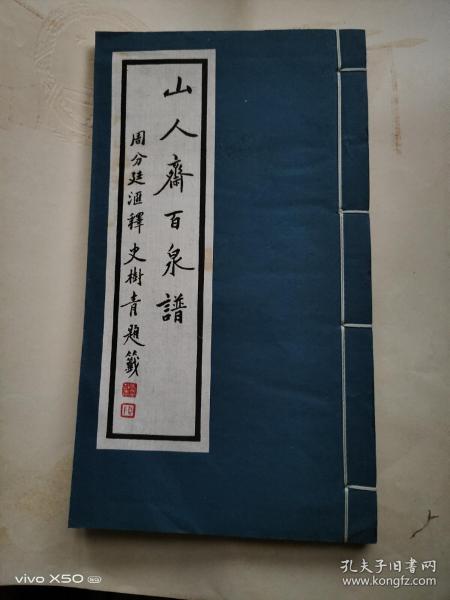 山人齋百泉譜
周分廷滙釋 史樹青題籤
vivo X50 5G
孔夫子旧书网
www.kongfz.com